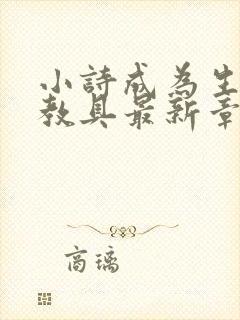 小詩成為生
教具最新章
商璃